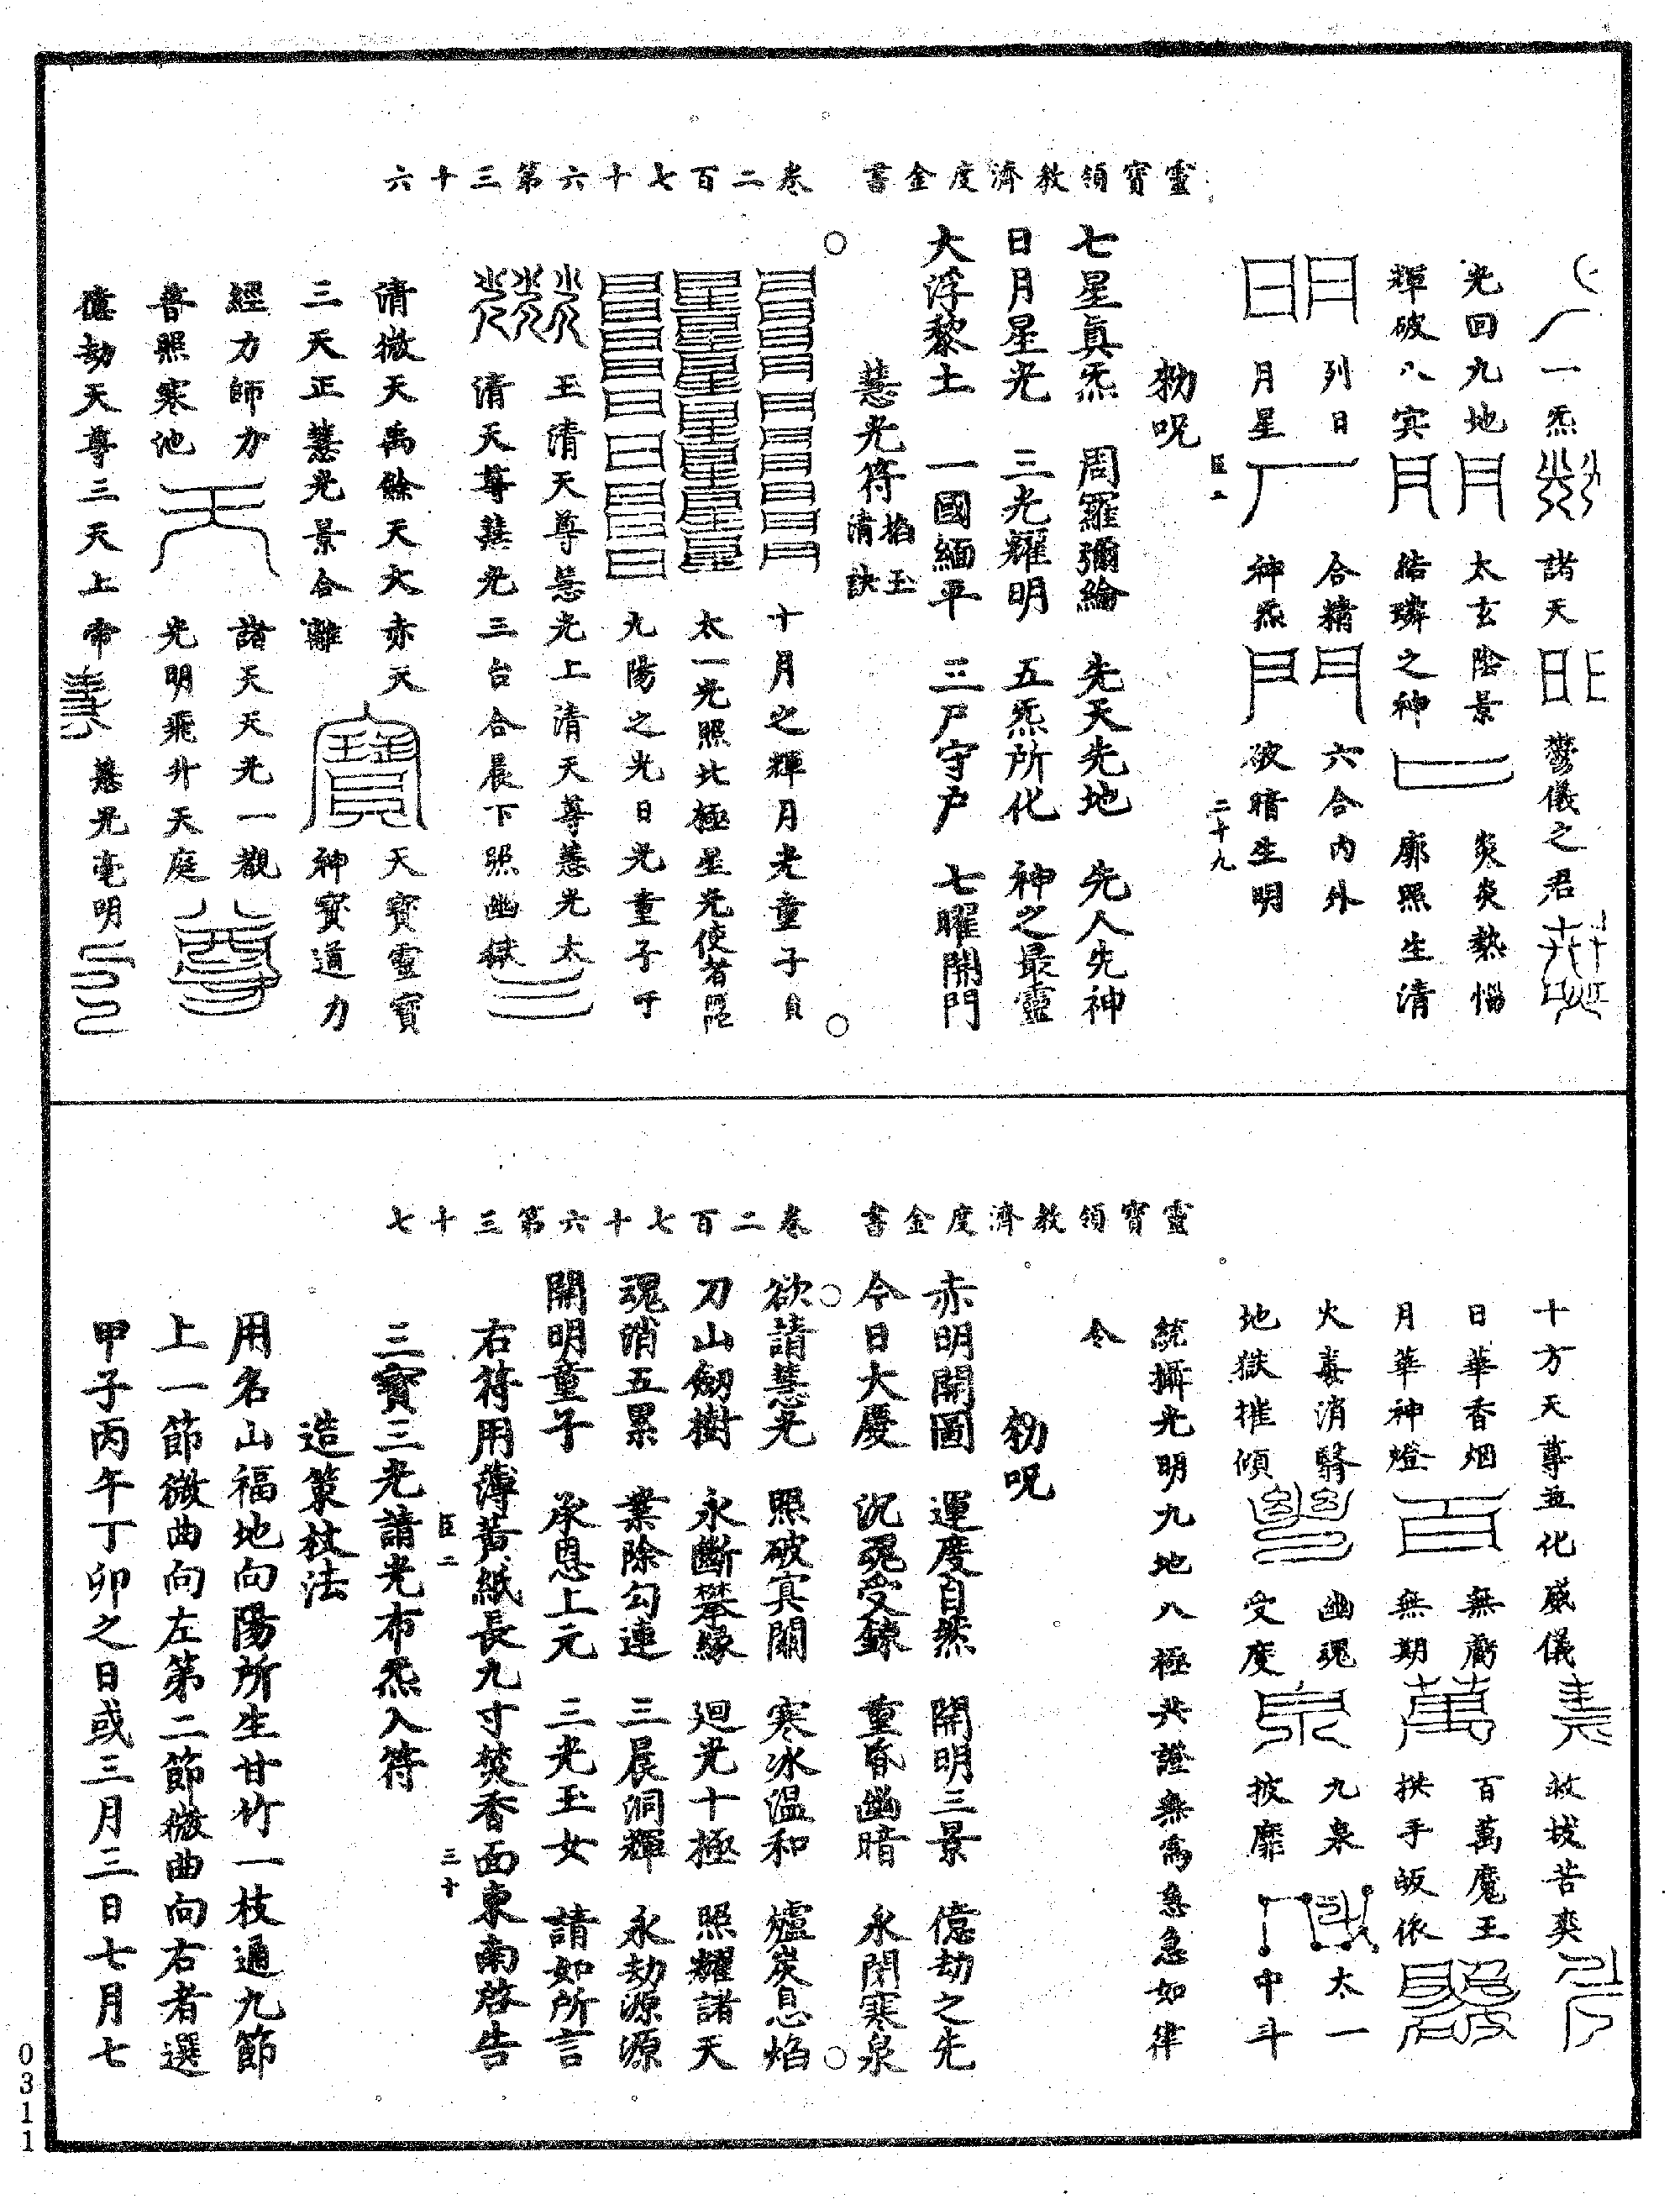 靈寶領教濟度金書　卷二百七十六第三十六
一炁　諸天　鬱儀之君
光回九地　太玄陰景　炎炎熱惱
輝破八冥　結璘之神　廓照生清
列日　合精　六合內外
月星　神炁　破暗生明
臣二　二十九
勑呪
七星眞炁　周羅彌綸　先天先地　先人先神
日月星光　三光耀明　五炁所化　神之最靈
大浮黎土　一國緬平　三尸守户　七曜開門
慧光符掐玉清訣
十月之輝月光童子貝
太一光照北極星光使者
九陽之光日光童子吁
玉清天尊慧光上清天尊慧光太
清天尊慧光三台合晨下照幽獄
清微天禹餘天大赤天　天寶靈寶
三天正慧光景合離　神寶道力
經力師力　諸天天光一觀
普照寒池　光明飛升天庭
億劫天尊三天上帝　慧光毫明
靈寶領教濟度金書　卷二百七十六第三十七
十方天尊並化威儀　救拔苦爽
日華香烟　無鞫　百萬魔王
月華神燈　無期　拱手皈依
火毒消翳　幽魂　九泉　太一
地獄摧傾　受度　披靡　中斗
統攝光明九地八極共證無爲急急如律
令
勑呪
赤明開圖　運度自然　開明三景　億劫之先
今日大慶　沉魂受鍊　重昏幽暗　永閉寒泉
欲請慧光　照破冥關　寒冰溫和　爐炭息焰
刀山劒樹　永斷攀緣　廻光十極　照耀諸天
魂消五累　業除勾連　三晨洞輝　永劫源源
開明童子　承恩上元　三光玉女　請如所言
右符用薄黃紙長九寸焚香面東南啓告
臣二　三十
三寶三光請光布炁入符
造策杖法
用名山福地向陽所生甘竹一枝通九節
上一節微曲向左第二節微曲向右者選
甲子丙午丁卯之日或三月三日七月七
0311